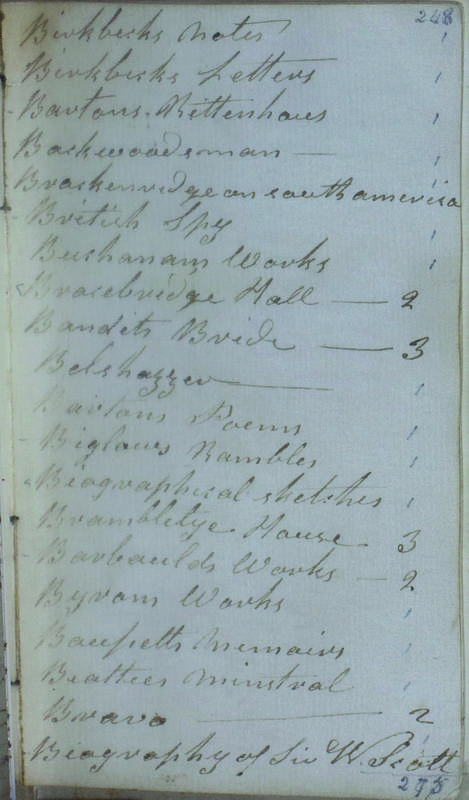 248
Birkbecks Notes 1
Birkbecks Letters 1
Bartons Rittenhous 1
Backwoodsman — 1
Brackenridge on south america 1
British Spy 1
Buchanans Works 1
Bracebridge Hall — 2
Bandits Bride — 3
Belshazzer — 1
Bartons Poems 1
Biglows Rambles 1
Biographical sketches 1
Brambletye House 3
Barbaulds Works — 2
Byrons Works 1
Memoirs 1
Beatties minstral 1
Bravo — 2
Biography of Sir W. Scott 1
275